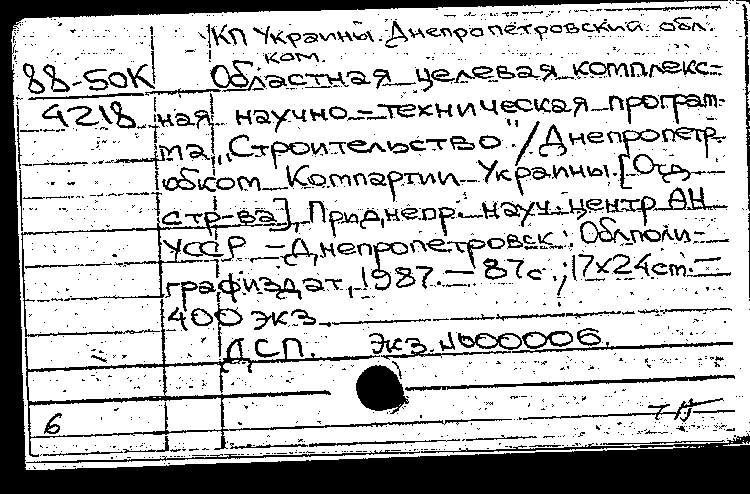 КП Украины. Днепропетровский обл.
ком.
88-50К Областная целевая комплекс-
4218 ная научно-техническая програм-
ма „Строительство"./Днепропетр.
обком Компартии Украины. [Отд.
стр-ва], Приднепр. науч. центр АН
УССР. - Днепропетровск: Облполи-
графиздат, 1987. - 87с.; 17х24cm. -
400 экз.
ДСП. Экз. №00006.
6